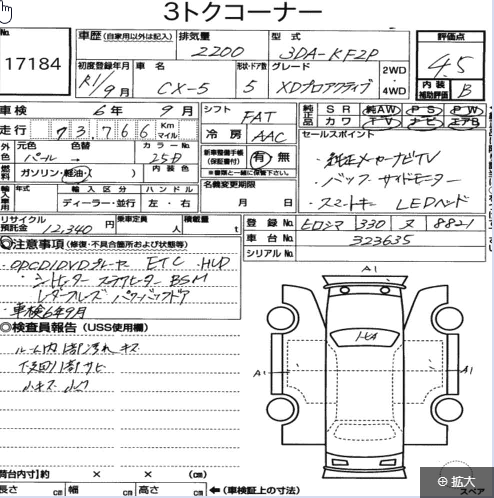 3トクコーナー
No. 17184
車歴 (自家用以外は記入) 排気量 2200 型式 3DA-KF2P 評価点 4.5
初度登録年月 R1/9月 車名 CX-5 形状・ドア数 5 グレード XDプロアクティブ 2WD・4WD 内装補助評価 B
車検 6年9月 シフト FAT 純正品 SR 純AW PS PW
走行 73,766 Km マイル 冷房 AAC カワ TV ナビ エアB
外色 元色 パール → 色替 カラーNo. 25D 新車整備手帳(保証書付) 有・無 セールスポイント
燃料 ガソリン・軽油・( ) 内装色 ※書類と一緒に保管下さい。
・純正メーカーナビTV
輸入車用 年式 輸入区分 ディーラー・並行 ハンドル 左・右 名義変更期限 月 日
・バック サイドモニター
・スマートキー LEDヘッド
リサイクル預託金 12,340円 乗車定員 人 積載量 t 登録No. ヒロシマ 330 ヌ 8821
車台No. 323635
シリアルNo.
◎注意事項 (修復・不具合箇所および状態等)
・CDプレーヤー ETC HUD
・シートヒーター BSM
・パワーバックドア
・車検6年9月
◎検査員報告 (USS使用欄)
ルーム内 汚れ キズ
下回り サビ
小キズ
A1
A1
A1
荷台内寸) 約 × × (cm)
長さ cm 幅 cm 高さ cm ← (車検証上の寸法)
スペア
拡大